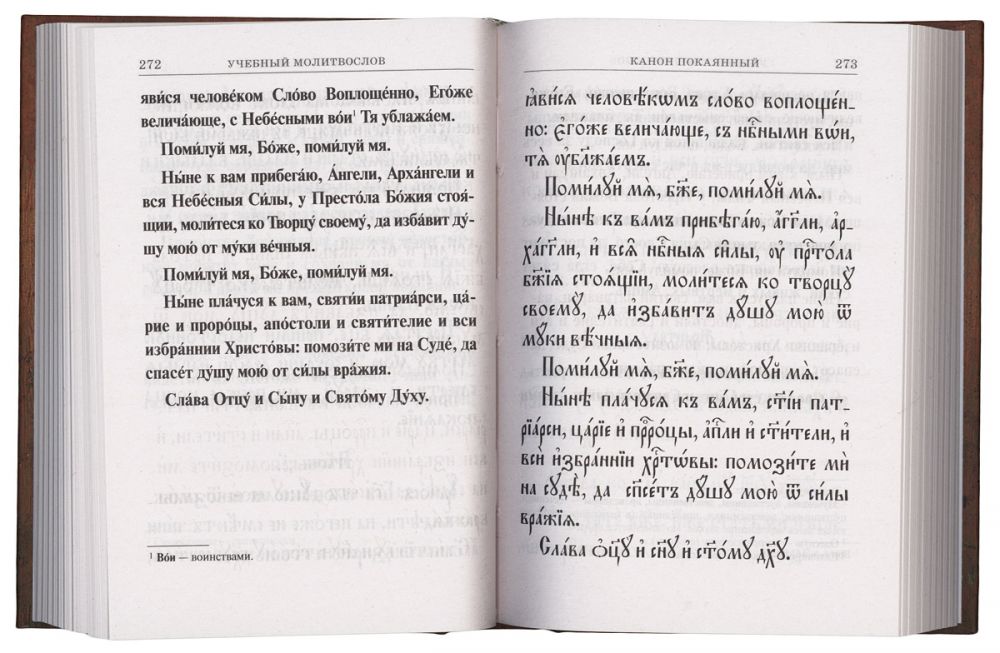 272 УЧЕБНЫЙ МОЛИТВОСЛОВ
яви́ся челове́ком Сло́во Воплоще́нно, Его́же
велича́юще, с Небе́сными во́и¹ Тя ублажа́ем.
Поми́луй мя, Бо́же, поми́луй мя.
Ны́не к вам прибега́ю, А́нгели, Арха́нгели и
вся Небе́сныя Си́лы, у Престо́ла Бо́жия стоя́-
щии, моли́теся ко Творцу́ своему́, да изба́вит ду́-
шу мою́ от му́ки ве́чныя.
Поми́луй мя, Бо́же, поми́луй мя.
Ны́не пла́чуся к вам, святи́и патриа́рси, ца́-
рие и проро́цы, апо́столи и святи́телие и вси
избра́ннии Христо́вы: помози́те ми на Суде́, да
спасе́т ду́шу мою́ от си́лы вра́жия.
Сла́ва Отцу́ и Сы́ну и Свято́му Ду́ху.
¹ Во́и — воинствами.
КАНОН ПОКАЯННЫЙ 273
ꙗ҆ви́сѧ человѣ́комъ сло́во воплоще́н-
но: є҆го́же велича́юще, съ нбⷭ҇ными во́и,
тѧ̀ ᲂу҆бл҃жа́емъ.
Поми́лꙋй мѧ̀, бж҃е, поми́лꙋй мѧ̀.
Ны́нѣ къ ва́мъ прибѣга́ю, а҆́гг҃ли, ар-
ха́гг҃ли, и҆ всѧ̑ нбⷭ҇ныѧ си̑лы, ᲂу҆ прⷭ҇то́ла
бж҃їѧ стоѧ́щїи, моли́тесѧ ко творцꙋ̀
своемꙋ̀, да и҆зба́витъ дꙋ́шꙋ мою̀ ѿ
мꙋ́ки вѣ́чныѧ.
Поми́лꙋй мѧ̀, бж҃е, поми́лꙋй мѧ̀.
Ны́нѣ пла́чꙋсѧ къ ва́мъ, ст҃і́и пат-
рїа́рси, ца́рїе и҆ прⷪ҇ро́цы, а҆пⷭ҇ли и҆ ст҃и́тели, и҆
всѝ и҆збра́ннїи хрⷭ҇то́вы: помози́те мѝ
на сꙋдѣ̀, да сп҃се́тъ дꙋ́шꙋ мою̀ ѿ си́лы
вра́жїѧ.
Сла́ва ѻ҆ц҃ꙋ̀ и҆ сн҃ꙋ и҆ ст҃о́мꙋ дх҃ꙋ.